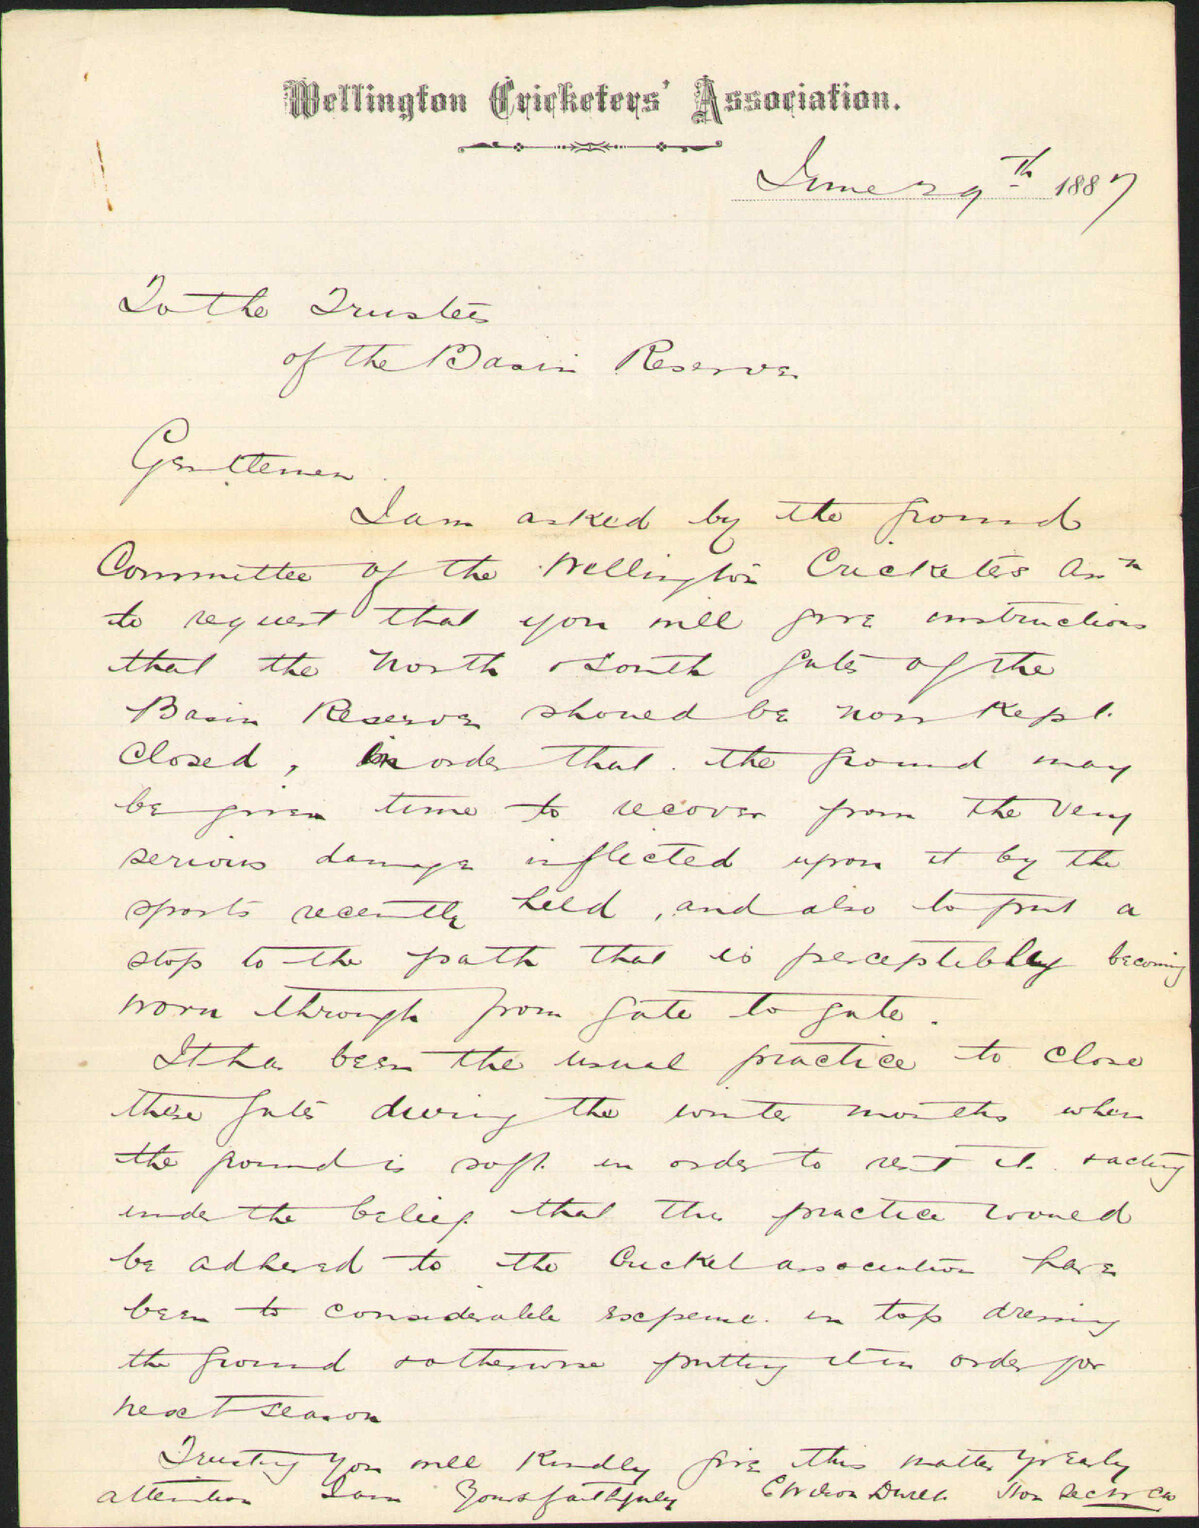 Wellington Cricketers' Association.
June 29th 1887
To the Trustees
of the Basin Reserve
Gentlemen
I am asked by the ground
Committee of the Wellington Cricketers Assn
to request that you will give instructions
that the North & South gates of the
Basin Reserve should be now kept
closed, in order that the ground may
be given time to recover from the very
serious damage inflicted upon it by the
sports recently held, and also to put a
stop to the path that is perceptibly becoming
worn through from gate to gate.
It has been the usual practice to close
these gates during the winter months when
the ground is soft in order to rest it & acting
under the belief that this practice would
be adhered to the Cricket association have
been to considerable expense in top dressing
the ground & otherwise putting it in order for
next season
Trusting you will kindly give this matter yr early
attention I am Yours faithfully Hon Sec W CA